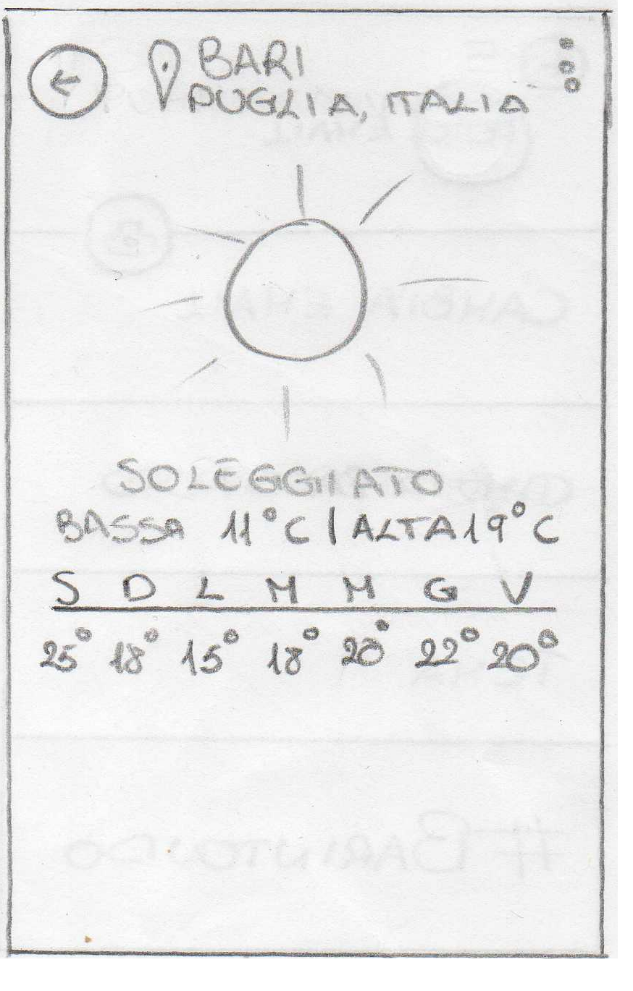 BARI
PUGLIA, ITALIA
SOLEGGIATO
BASSA 11°C | ALTA 19°C
S D L M M G V
25° 18° 15° 18° 20° 22° 20°